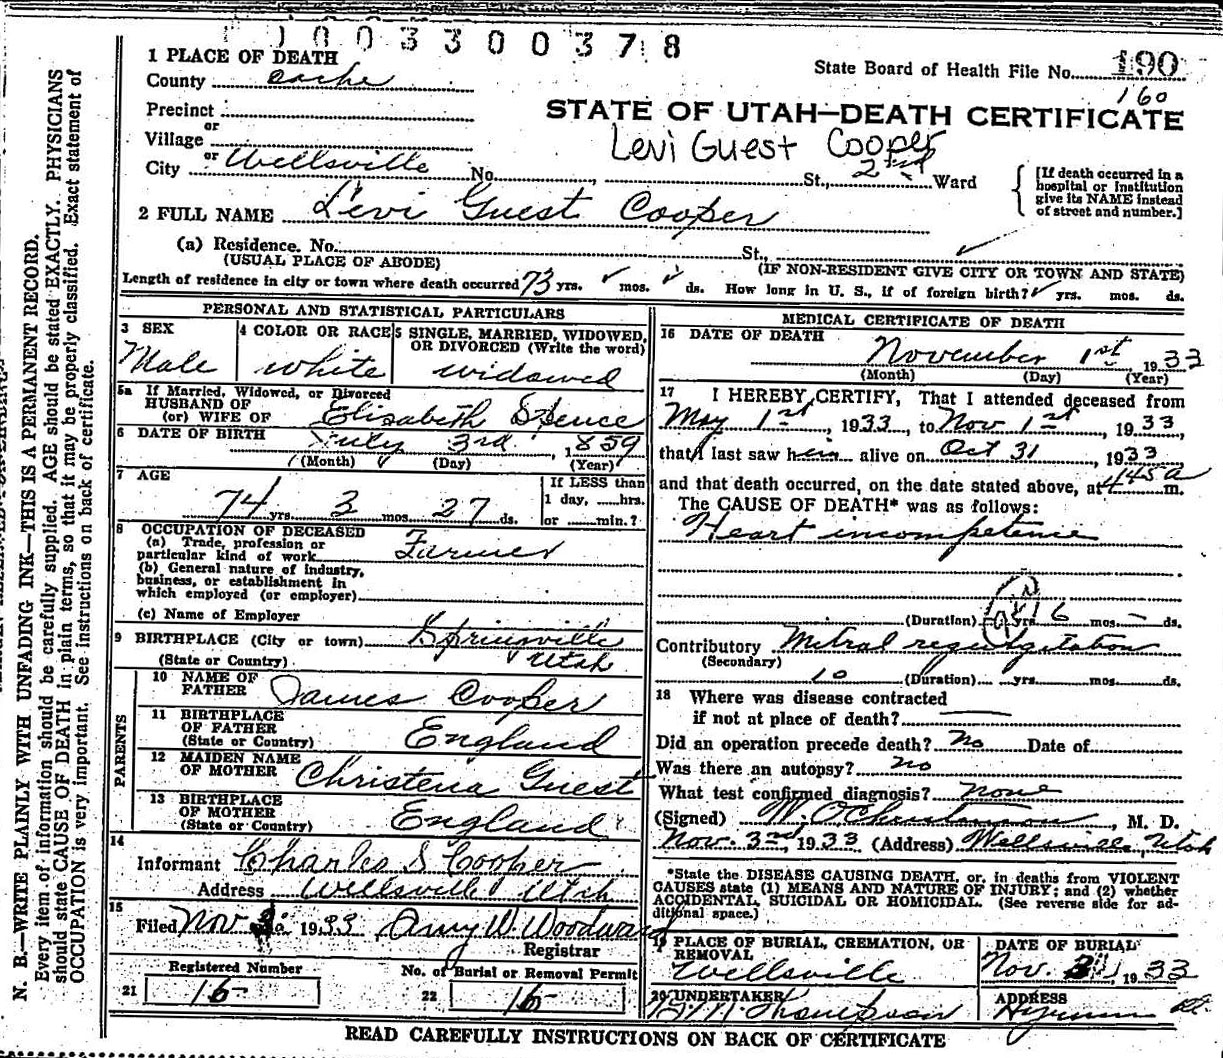 1003300378
1 PLACE OF DEATH
State Board of Health File No. 190
160
County Cache
STATE OF UTAH—DEATH CERTIFICATE
Precinct
or
Village
Levi Guest Cooper
or
City Wellsville No. , St., 2nd Ward
[If death occurred in a
hospital or institution
give its NAME instead
of street and number.]
2 FULL NAME Levi Guest Cooper
(a) Residence. No. St.,
(USUAL PLACE OF ABODE) (IF NON-RESIDENT GIVE CITY OR TOWN AND STATE)
Length of residence in city or town where death occurred 73 yrs. mos. ds. How long in U. S., if of foreign birth? yrs. mos. ds.
PERSONAL AND STATISTICAL PARTICULARS
3 SEX
Male
4 COLOR OR RACE
white
5 SINGLE, MARRIED, WIDOWED,
OR DIVORCED (Write the word)
widowed
5a If Married, Widowed, or Divorced
HUSBAND OF
(or) WIFE OF Elisabeth Spence
6 DATE OF BIRTH July 3rd, 1859
(Month) (Day) (Year)
7 AGE
74 yrs. 3 mos. 27 ds.
If LESS than
1 day, hrs.
or min.?
8 OCCUPATION OF DECEASED
(a) Trade, profession or
particular kind of work Farmer
(b) General nature of industry,
business, or establishment in
which employed (or employer)
(c) Name of Employer
9 BIRTHPLACE (City or town) Springville
(State or Country) Utah
PARENTS
10 NAME OF
FATHER James Cooper
11 BIRTHPLACE
OF FATHER
(State or Country) England
12 MAIDEN NAME
OF MOTHER Christena Guest
13 BIRTHPLACE
OF MOTHER
(State or Country) England
14
Informant Charles S Cooper
Address Wellsville Utah
15
Filed Nov 1933 Amy W. Woodward
Registrar
Registered Number
21 15
No. of Burial or Removal Permit
22 15
MEDICAL CERTIFICATE OF DEATH
16 DATE OF DEATH
November 1st 1933
(Month) (Day) (Year)
17 I HEREBY CERTIFY, That I attended deceased from
May 1st, 1933, to Nov 1st, 1933,
that I last saw him alive on Oct 31, 1933
and that death occurred, on the date stated above, at 445a m.
The CAUSE OF DEATH* was as follows:
Heart incompetence
(Duration) yrs. 6 mos. — ds.
Contributory Mitral regurgitation
(Secondary)
10 (Duration) yrs. mos. ds.
18 Where was disease contracted
if not at place of death?
Did an operation precede death? No Date of
Was there an autopsy? no
What test confirmed diagnosis? none
(Signed) W. O Christensen, M. D.
Nov. 3rd, 1933 (Address) Wellsville, Utah
*State the DISEASE CAUSING DEATH, or, in deaths from VIOLENT
CAUSES state (1) MEANS AND NATURE OF INJURY; and (2) whether
ACCIDENTAL, SUICIDAL OR HOMICIDAL. (See reverse side for ad-
ditional space.)
19 PLACE OF BURIAL, CREMATION, OR
REMOVAL
Wellsville
DATE OF BURIAL
Nov. 3, 1933
20 UNDERTAKER
Thompson
ADDRESS
Hyrum
READ CAREFULLY INSTRUCTIONS ON BACK OF CERTIFICATE
N. B.—WRITE PLAINLY WITH UNFADING INK—THIS IS A PERMANENT RECORD.
Every item of information should be carefully supplied. AGE should be stated EXACTLY. PHYSICIANS
should state CAUSE OF DEATH in plain terms, so that it may be properly classified. Exact statement of
OCCUPATION is very important. See instructions on back of certificate.